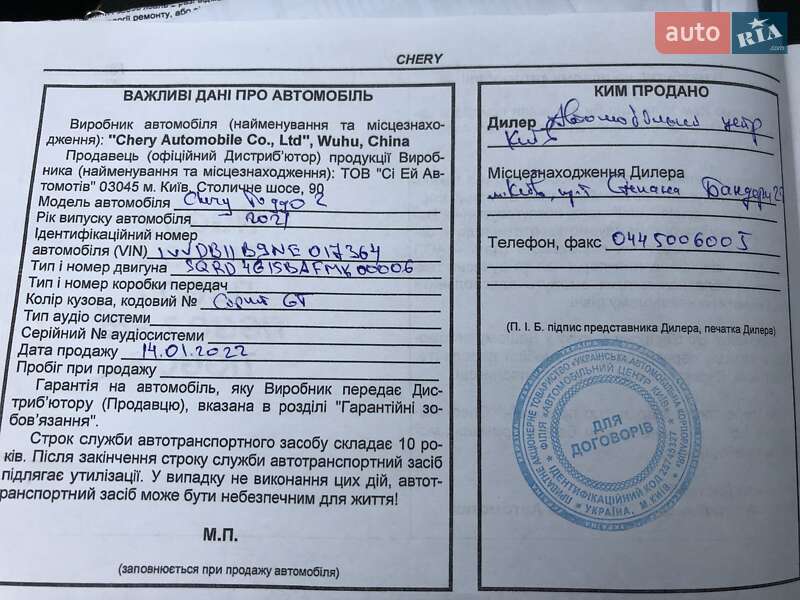 ії ремонту, або
auto RIA.com
CHERY
ВАЖЛИВІ ДАНІ ПРО АВТОМОБІЛЬ
Виробник автомобіля (найменування та місцезнахо-
дження): "Chery Automobile Co., Ltd", Wuhu, China
Продавець (офіційний Дистриб'ютор) продукції Вироб-
ника (найменування та місцезнаходження): ТОВ "Сі Ей Ав-
томотів" 03045 м. Київ, Столичне шосе, 90
Модель автомобіля Chery Тігго 2
Рік випуску автомобіля 2021
Ідентифікаційний номер
автомобіля (VIN) LVVDB11B9NE017364
Тип і номер двигуна SQRD4G15BAFMK00006
Тип і номер коробки передач
Колір кузова, кодовий № Сірий GT
Тип аудіо системи
Серійний № аудіосистеми
Дата продажу 14.01.2022
Пробіг при продажу
Гарантія на автомобіль, яку Виробник передає Дис-
триб'ютору (Продавцю), вказана в розділі "Гарантійні зо-
бов'язання".
Строк служби автотранспортного засобу складає 10 ро-
ків. Після закінчення строку служби автотранспортний засіб
підлягає утилізації. У випадку не виконання цих дій, автот-
ранспортний засіб може бути небезпечним для життя!
М.П.
(заповнюється при продажу автомобіля)
КИМ ПРОДАНО
Дилер Автомобільний центр
Київ
Місцезнаходження Дилера
м.Київ, пр-т Степана Бандери
Телефон, факс 0445006005
(П. І. Б. підпис представника Дилера, печатка Дилера)
ПРИВАТНЕ АКЦІОНЕРНЕ ТОВАРИСТВО «УКРАЇНСЬКА АВТОМОБІЛЬНА КОРПОРАЦІЯ»
ФІЛІЯ «АВТОМОБІЛЬНИЙ ЦЕНТР КИЇВ»
ДЛЯ
ДОГОВОРІВ
ІДЕНТИФІКАЦІЙНИЙ КОД 25745327
УКРАЇНА, М. КИЇВ